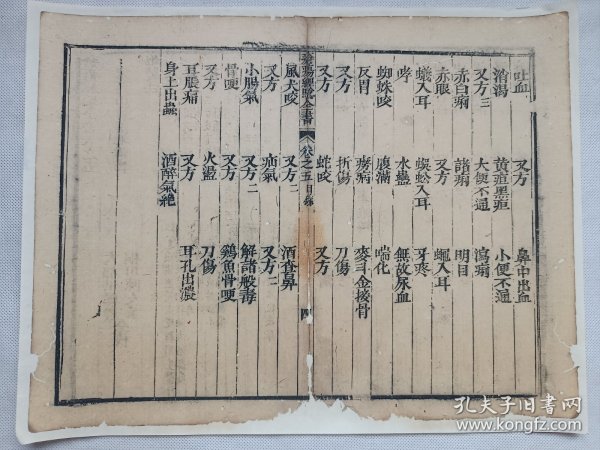 吐血 又方 鼻中出血
消渴 黄疸黑疸 小便不通
又方三 大便不通 瀉痢
赤白痢 諸痢 明目
赤眼 又方 蠅入耳
蟻入耳 蜈蚣入耳 牙疼
哮 水蠱 無故尿血
蜘蛛咬 腹滿 喘化
反胃 癆病 麥斗金接骨
又方 折傷 刀傷
又方 蛇咬 又方
瘡瘍經驗全書 卷之五目錄 四
風犬咬 又方二 酒查鼻
又方 疝氣 又方二
小腸氣 又方二 解諸般毒
骨哽 又方 鷄魚骨哽
又方 火盪 刀傷
耳脹痛 又方 耳孔出濃
身上出蟲 酒醉氣絶
孔夫子旧书网
www.kongfz.com